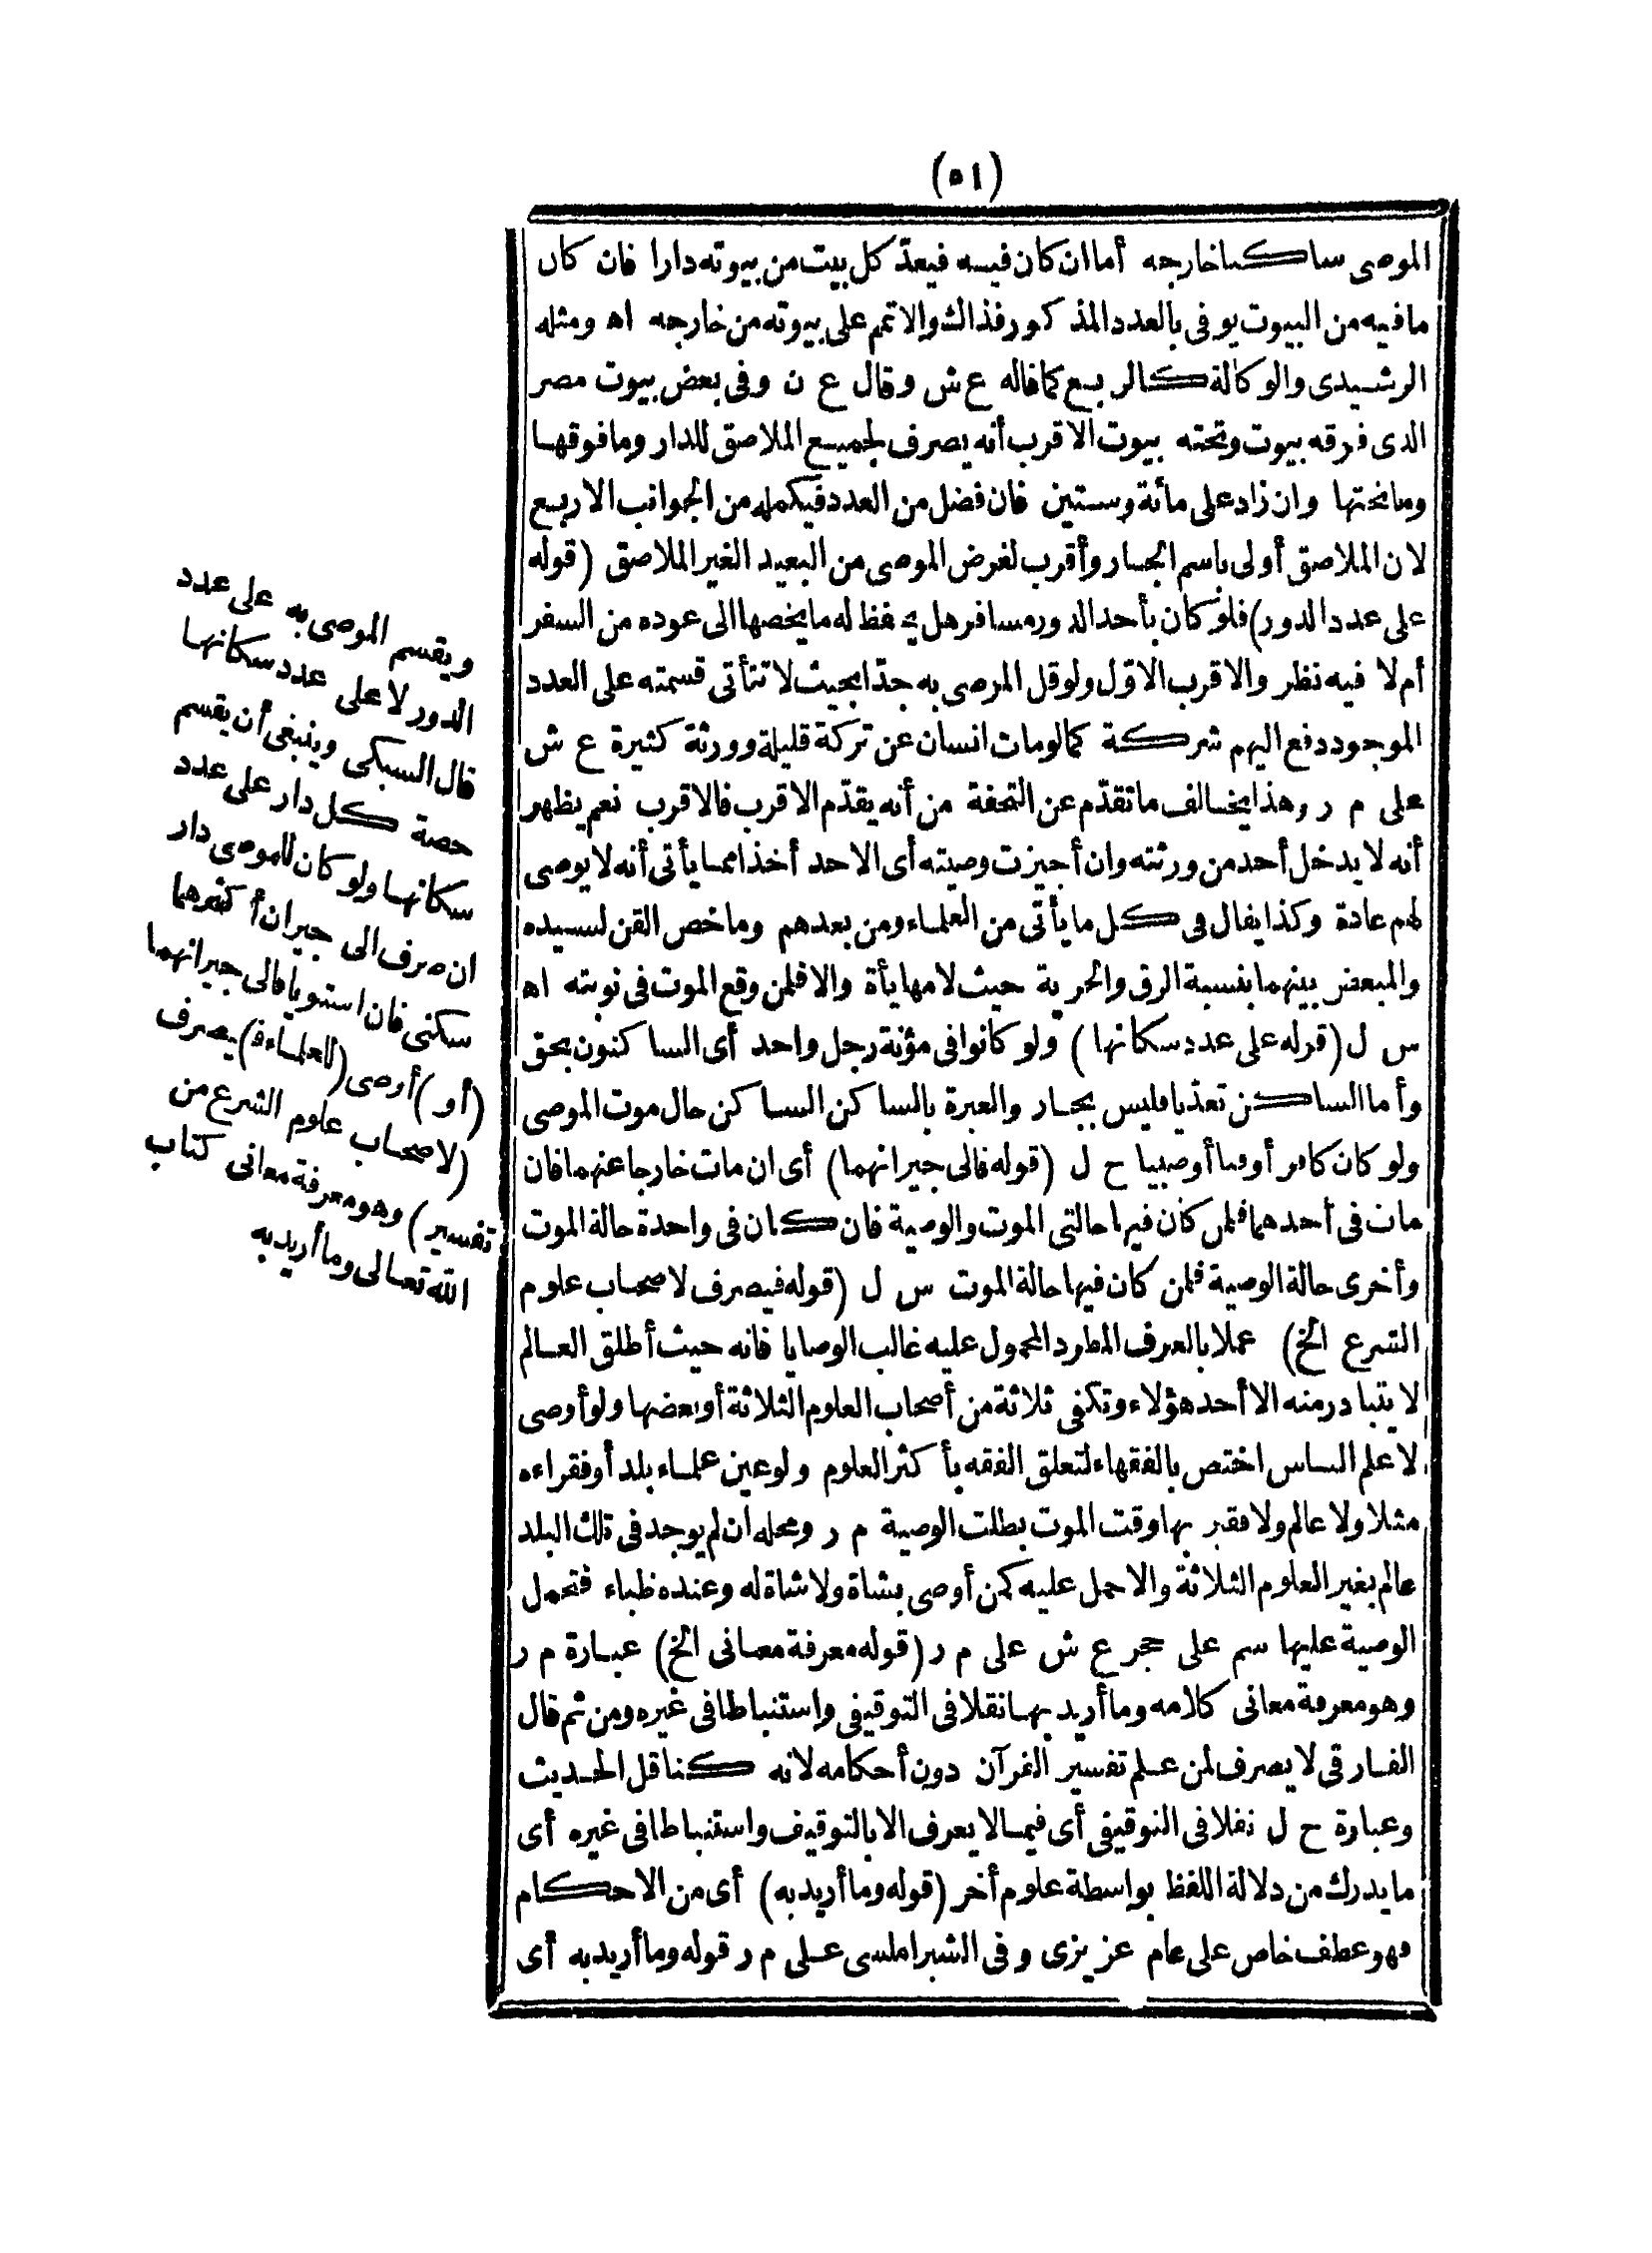 (٥١)
الموصى ساكنا خارجه أما ان كان فيه فيعدّ كل بيت من بيوته دارا فان كان
ما فيه من البيوت يوفى بالعدد المذكور فذالك والا تمم على بيوته من خارجه اه ومثله
الرشيدى والوكالة كالربع كما قاله ع ش وقال ع ن وفى بعض بيوت مصر
الذى فوقه بيوت وتحته بيوت الاقرب أنه يصرف لجميع الملاصق للدار وما فوقها
وما تحتها وان زاد على مائة وستين فان فضل من العدد فيكمله من الجوانب الاربع
لان الملاصق أولى باسم الجار وأقرب لغرض الموصى من البعيد الغير الملاصق (قوله
على عدد الدور) فلو كان بأحد الدور مسافر هل يحفظ له ما يخصها الى عوده من السفر
أم لا فيه نظر والاقرب الاوّل ولو قل الموصى به جدّا بحيث لا تتأتى قسمته على العدد
الموجود دفع اليهم شركة كما لو مات انسان عن تركة قليلة وورثة كثيرة ع ش
على م ر وهذا يخالف ما تقدّم عن التحفة من أنه يقدّم الاقرب فالاقرب نعم يظهر
أنه لا يدخل أحد من ورثته وان أجيزت وصيته أى الاحد أخذا مما يأتى أنه لا يوصى
لهم عادة وكذا يقال فى كل ما يأتى من العلماء ومن بعدهم وما خص القن لسيده
والمبعض بينهما بنسبة الرق والحرية حيث لا مهايأة والا فلمن وقع الموت فى نوبته اه
س ل (قوله على عدد سكانها) ولو كانوا فى مؤنة رجل واحد أى الساكنون بحق
وأما الساكن تعدّيا فليس بجار والعبرة بالساكن الساكن حال موت الموصى
ولو كان كافرا أو قنا أو صبيا ح ل (قوله فالى جيرانهما) أى ان مات خارجا عنهما فان
مات فى أحدهما فلمن كان فيها حالتى الموت والوصية فان كان فى واحدة حالة الموت
وأخرى حالة الوصية فلمن كان فيها حالة الموت س ل (قوله فيصرف لاصحاب علوم
الشرع الخ) عملا بالعرف المطرد المحمول عليه غالب الوصايا فانه حيث أطلق العالم
لا يتبادر منه الا أحد هؤلاء وتكفى ثلاثة من أصحاب العلوم الثلاثة أو بعضها ولو أوصى
لا علم الناس اختص بالفقهاء لتعلق الفقه بأكثر العلوم ولو عين علماء بلد أو فقراءه
مثلا ولا عالم ولا فقير بها وقت الموت بطلت الوصية م ر ومحله ان لم يوجد فى تلك البلد
عالم بغير العلوم الثلاثة والاحمل عليه كمن أوصى بشاة ولا شاة له وعنده ظباء فتحمل
الوصية عليها سم على حجر ع ش على م ر (قوله معرفة معانى الخ) عبارة م ر
وهو معرفة معانى كلامه وما أريد بها نقلا فى التوقيفى واستنباطا فى غيره ومن ثم قال
الفارقى لا يصرف لمن علم تفسير القرآن دون أحكامه لانه كناقل الحديث
وعبارة ح ل نقلا فى التوقيفى أى فيما لا يعرف الا بالتوقيف واستنباطا فى غيره أى
ما يدرك من دلالة اللفظ بواسطة علوم أخر (قوله وما أريد به) أى من الاحكام
فهو عطف خاص على عام عزيزى وفى الشبراملسى على م ر قوله وما أريد به أى
ويقسم الموصى به على عدد
الدور لا على عدد سكانها
قال السبكى وينبغى أن يقسم
حصة كل دار على عدد
سكانها ولو كان للموصى دار
ان صرف الى جيران أكثرهما
سكنى فان استويا فالى جيرانهما
(أو) أوصى (للعلماء ف) يصرف
(لاصحاب علوم الشرع من
تفسير) وهو معرفة معانى كتاب
الله تعالى وما أريد به